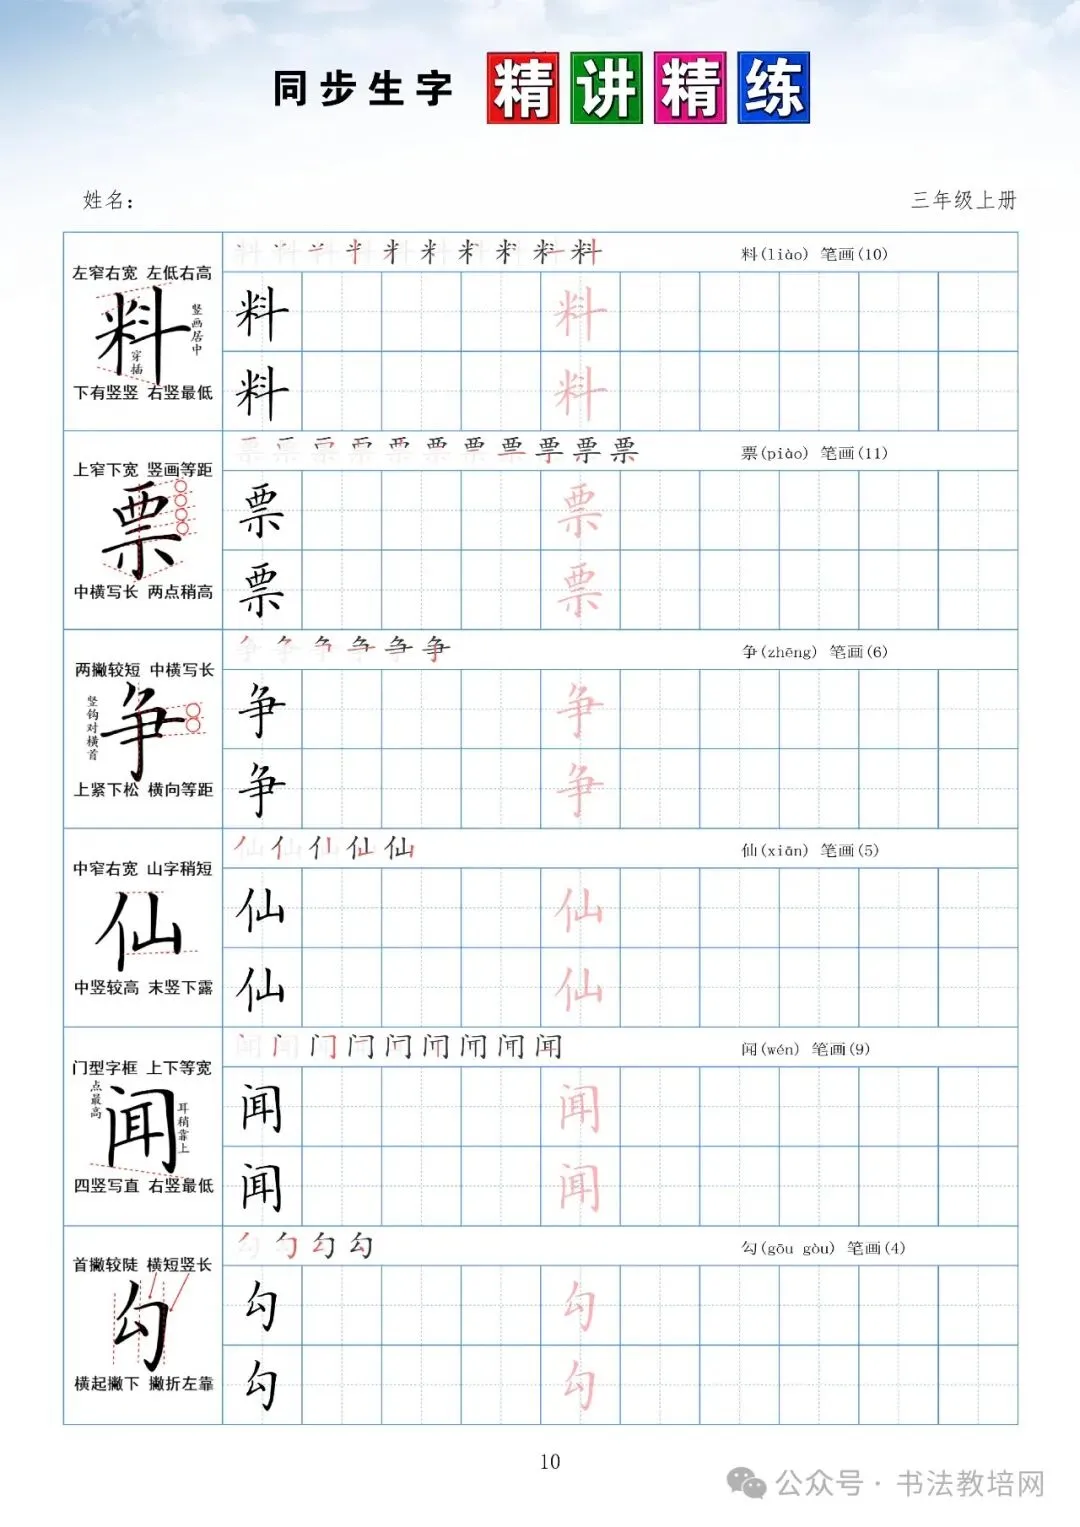 同步生字 精讲精练
姓名：
三年级上册
料(liào) 笔画(10)
左窄右宽 左低右高
料
竖画居中
穿插
下有竖竖 右竖最低
料 料
料 料
票(piào) 笔画(11)
上窄下宽 竖画等距
票
中横写长 两点稍高
票 票
票 票
争(zhēng) 笔画(6)
两撇较短 中横写长
争
竖钩对横首
上紧下松 横向等距
争 争
争 争
仙(xiān) 笔画(5)
中窄右宽 山字稍短
仙
中竖较高 末竖下露
仙 仙
仙 仙
闻(wén) 笔画(9)
门型字框 上下等宽
点最高
闻
耳稍靠上
四竖写直 右竖最低
闻 闻
闻 闻
勾(gōu gòu) 笔画(4)
首撇较陡 横短竖长
勾
横起撇下 撇折左靠
勾 勾
勾 勾
10
公众号·书法教培网